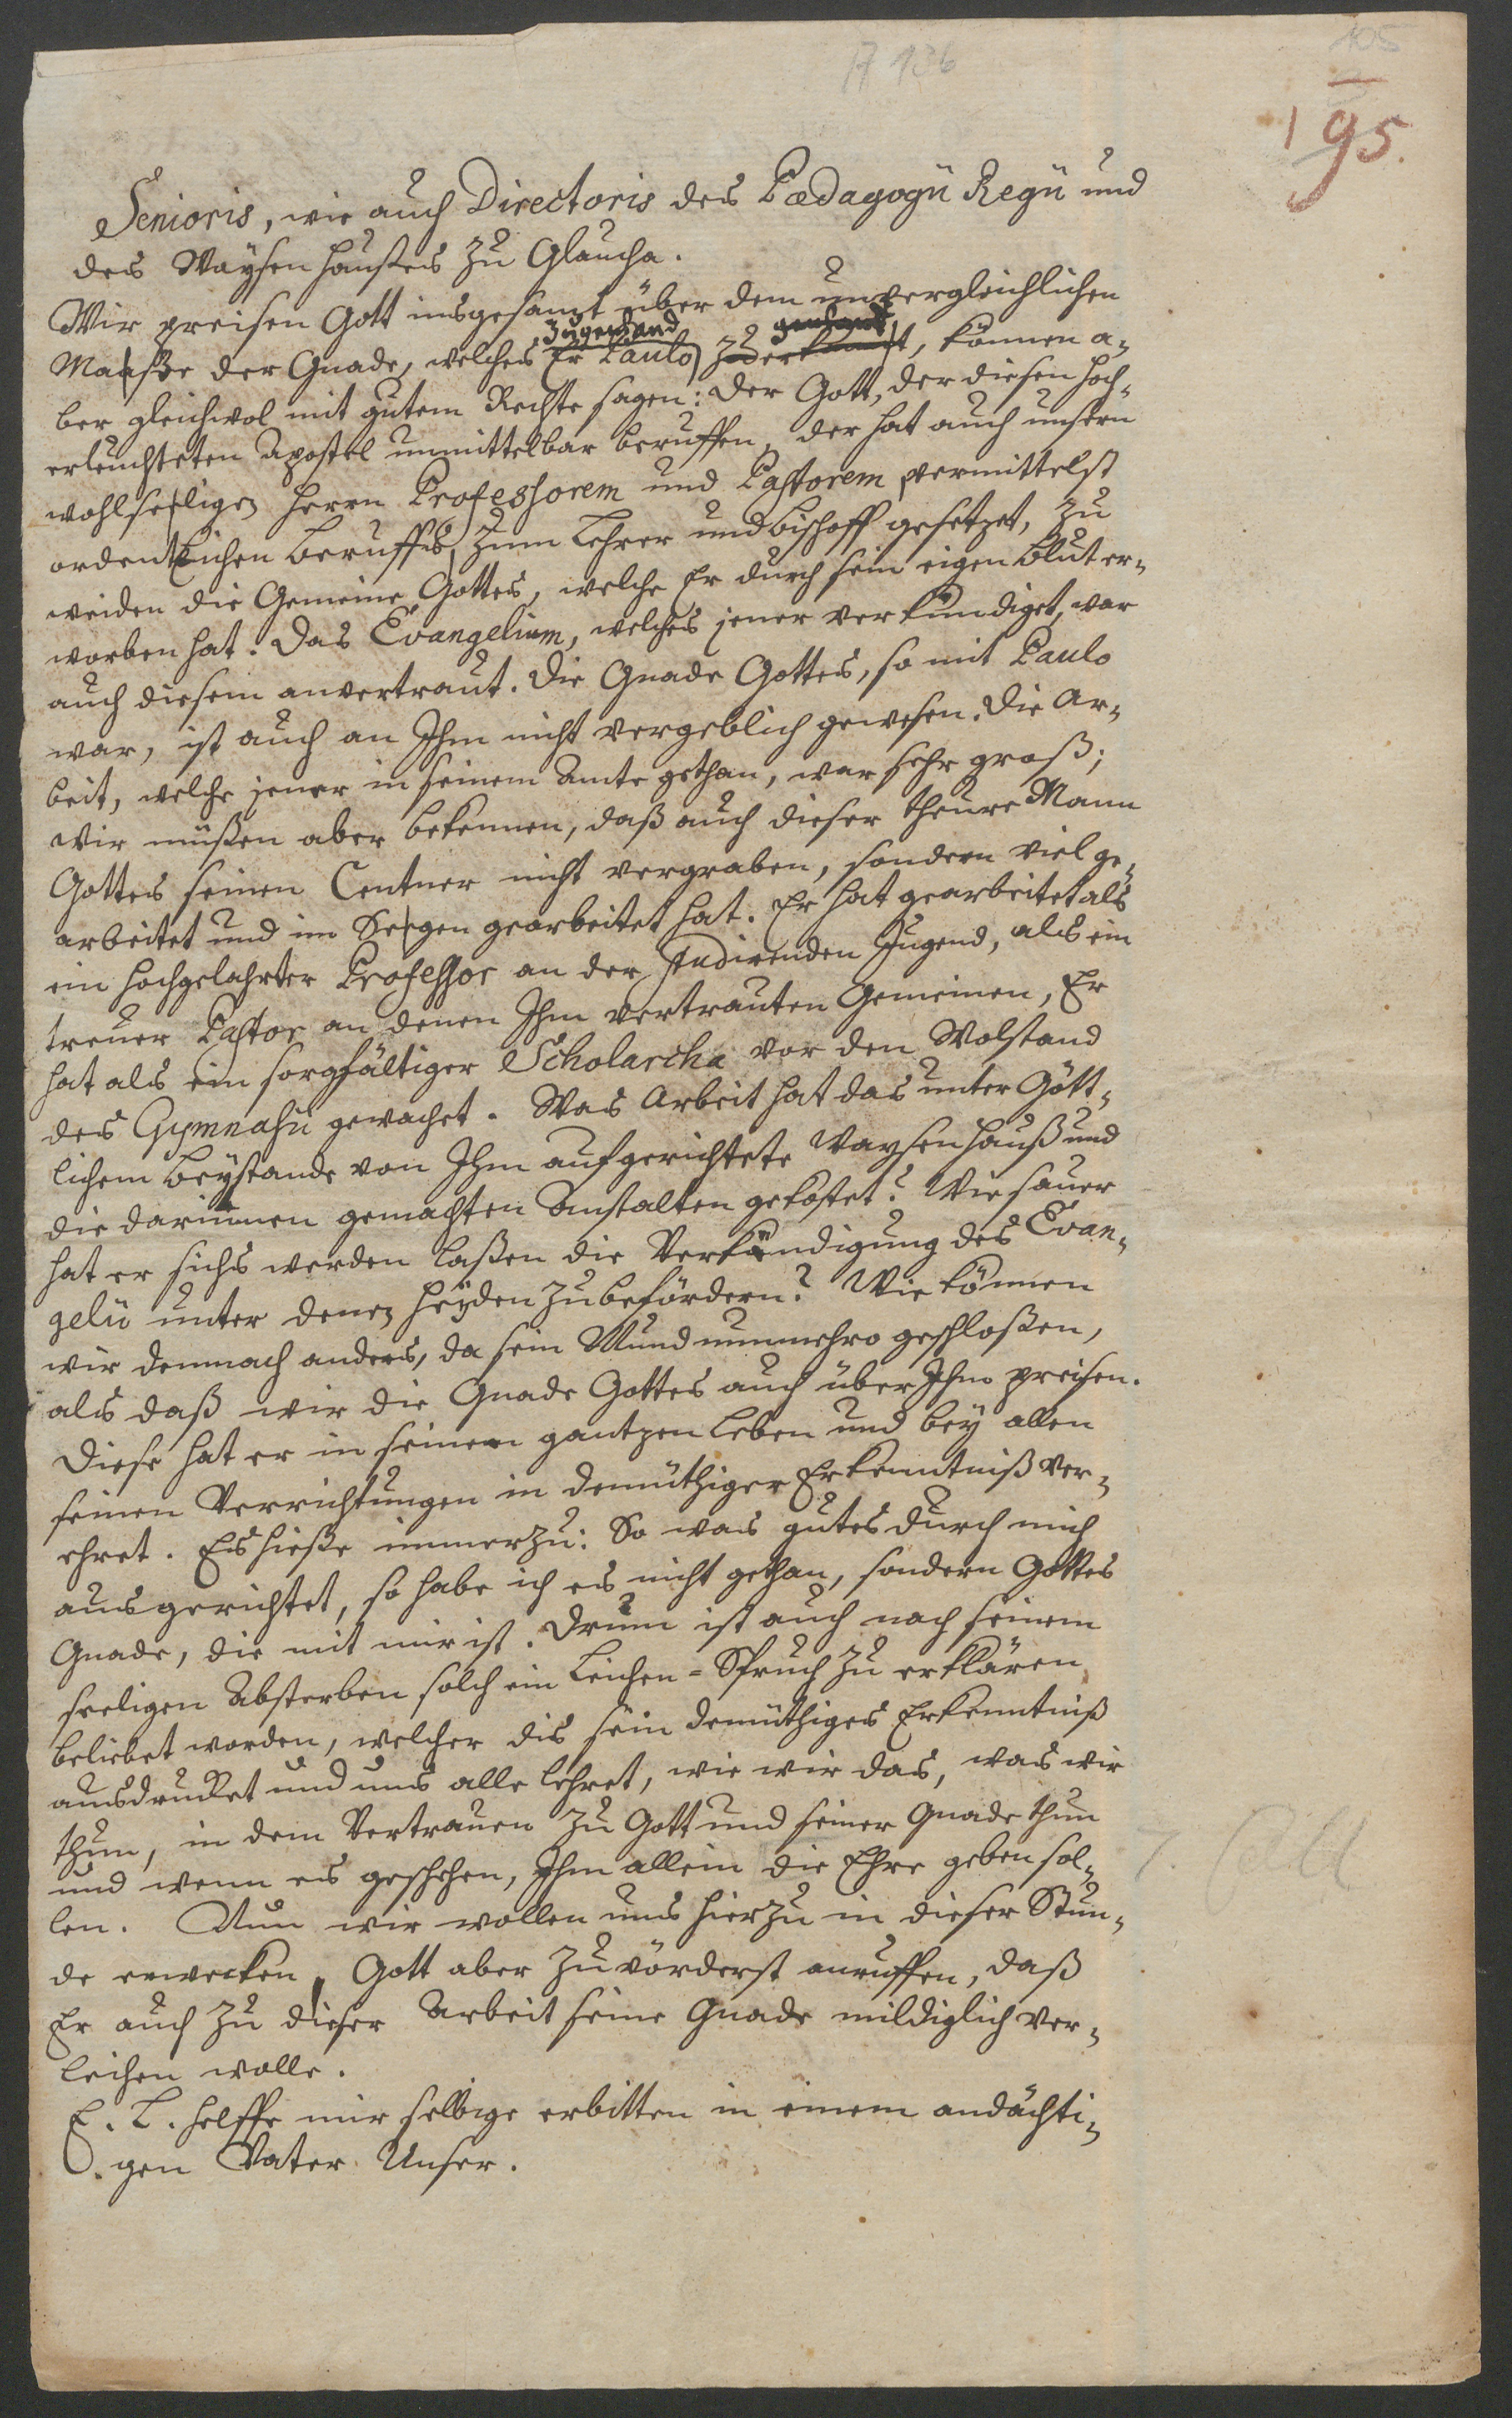 A 136
105
195.
Senioris, wie auch Directoris des Pædagogii Regii und
des Waysenhaußes zu Glaucha.
Wir preisen Gott insgesamt über dem unvergleichlichen
Maaße der Gnade, welches Er Paulo zuerkannt, können a-
ber gleichwol mit gutem Rechte sagen: der Gott, der diesen hoch-
erleuchteten Apostel unmittelbar beruffen, der hat auch unsern
wohlseligen Herrn Professorem und Pastorem, vermittelst
ordentlichen Beruffes, zum Lehrer und Bischoff gesetzet, zu
weiden die Gemeine Gottes, welche Er durch sein eigen Blut er-
worben hat. Das Evangelium, welches jener verkündiget, war
auch diesem anvertraut. Die Gnade Gottes, so mit Paulo
war, ist auch an Ihm nicht vergeblich gewesen. Die Ar-
beit, welche jener in seinem Amte gethan, war sehr groß;
wir müßen aber bekennen, daß auch dieser theure Mann
Gottes seinen Centner nicht vergraben, sondern viel ge-
arbeitet und im Seegen gearbeitet hat. Er hat gearbeitet als
ein hochgelahrter Professor an der studirenden Jugend, als ein
treuer Pastor an denen Ihm vertrauten Gemeinen, Er
hat als ein sorgfältiger Scholarcha vor den Wolstand
des Gymnasii gewachet. Was Arbeit hat das unter Gött-
lichem Beystande von Ihm aufgerichtete Waysenhauß und
die darinnen gemachten Anstalten gekostet? Wie sauer
hat er sichs werden laßen die Verkündigung des Evan-
gelii unter denen Heyden zu befördern? Wie können
wir demnach anders, da sein Mund nunmehro geschloßen,
als daß wir die Gnade Gottes auch über Ihm preisen.
Diese hat er in seinem gantzen Leben und bey allen
seinen Verrichtungen in demüthiger Erkenntniß ver-
ehret. Es hieße immerzu: So was gutes durch mich
ausgerichtet, so habe ich es nicht gethan, sondern Gottes
Gnade, die mit mir ist. Drum ist auch nach seinem
seeligen Absterben solch ein Leichen-Spruch zu erklären
beliebet worden, welcher dis sein demüthiges Erkenntniß
ausdrucket und uns alle lehret, wie wir das, was wir
thun, in dem Vertrauen zu Gott und seiner Gnade thun
und wenn es geschehen, Ihm allein die Ehre geben sol-
len. Nun wir wollen uns hierzu in dieser Stun-
de erwecken, Gott aber zuvörderst anruffen, daß
Er auch zu dieser Arbeit seine Gnade mildiglich ver-
leihen wolle.
E. L. helffe mir selbige erbitten in einem andächti-
gen Vater Unser.